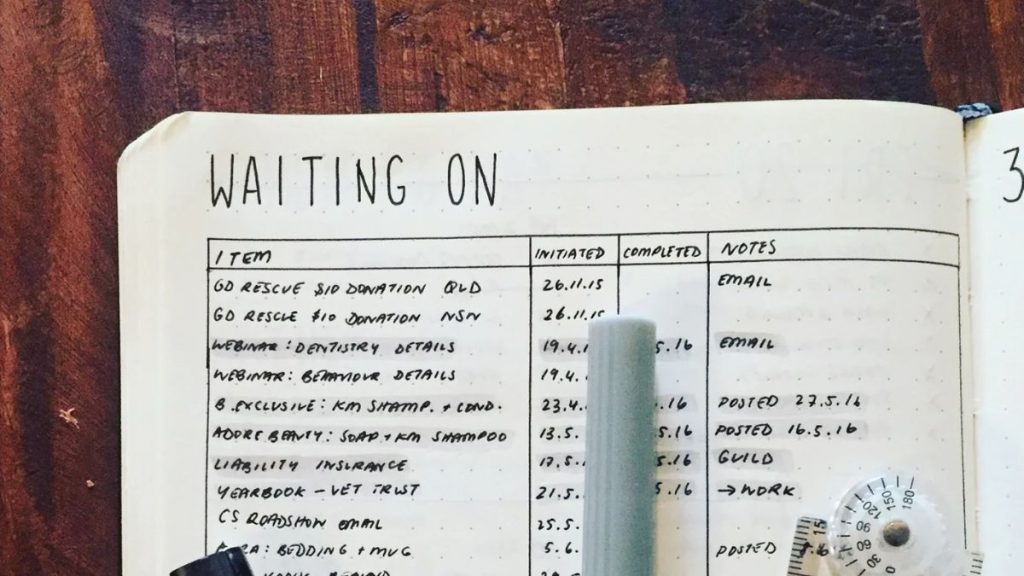 WAITING ON
3
ITEM INITIATED COMPLETED NOTES
GD RESCUE $10 DONATION QLD 26.11.15 EMAIL
GD RESCUE $10 DONATION NSW 26.11.15
WEBINAR: DENTISTRY DETAILS 19.4. 5.16 EMAIL
WEBINAR: BEHAVIOUR DETAILS 19.4.
B.EXCLUSIVE: KM SHAMP. + COND. 23.4. .16 POSTED 27.5.16
ADORE BEAUTY: SOAP + KM SHAMPOO 13.5. 5.16 POSTED 16.5.16
LIABILITY INSURANCE 17.5. 5.16 GUILD
YEARBOOK - VET TRUST 21.5. 5.16 → WORK
CS ROADSHOW EMAIL 25.5.
: BEDDING + MUG 5.6. POSTED
15
0 30 60 90 120 150 180